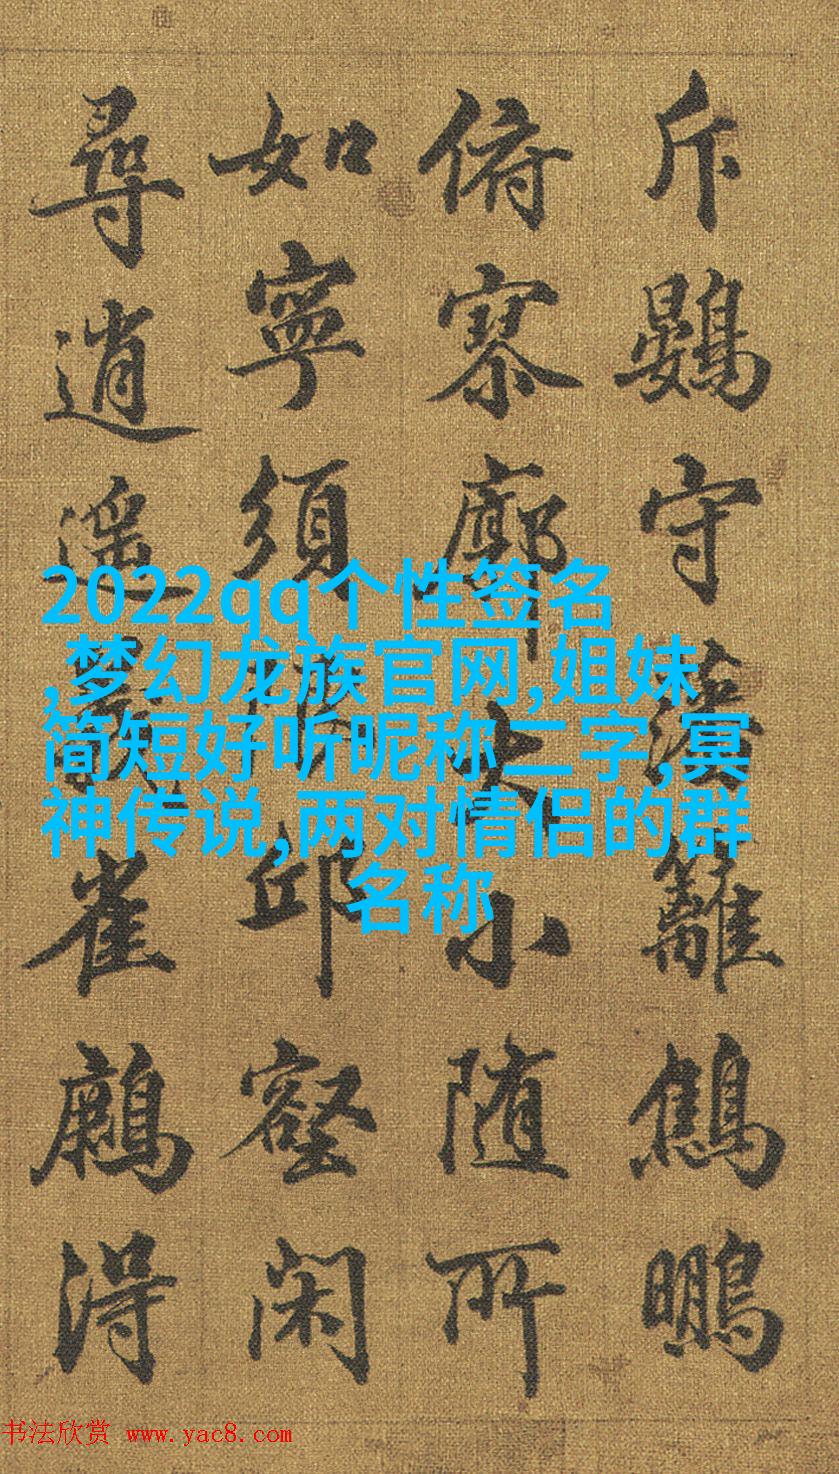 斥鷃守藩籬鷦鵬
俯寥廓大小随所
如寧須邱壑閑
尋逍遥雀得
2022qq个性签名
,梦幻龙族官网,姐妹
简短好听昵称二字,冥
神传说,两对情侣的群
名称
书法欣赏 www.yac8.com